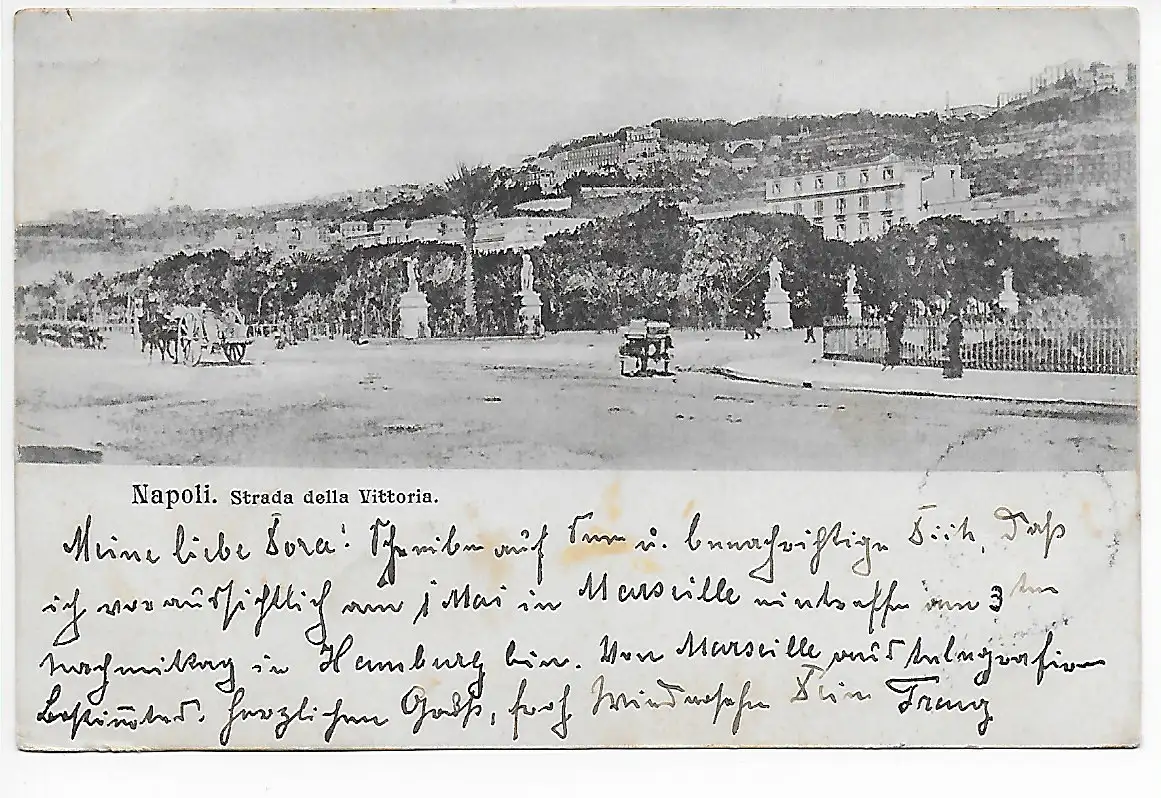 Napoli. Strada della Vittoria.
Meine liebe Dora! Schreibe auf See u. benachrichtige Dich, daß
ich voraussichtlich am 1 Mai in Marseille eintreffe am 3ten
nachmittag in Hamburg bin. Von Marseille aus telegrafire
Bestim̅tes. Herzlichen Gruß, froh Wiedersehn Dein Franz